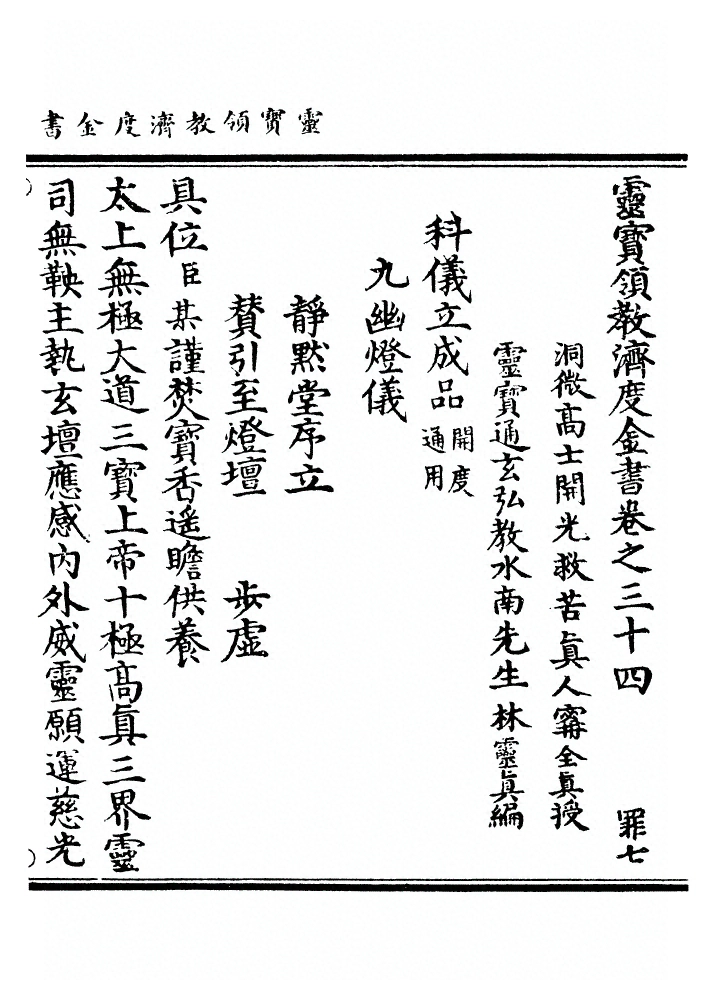 靈寶領教濟度金書
靈寶領教濟度金書卷之三十四　罪七
洞微高士開光救苦眞人甯全眞授
靈寶通玄弘教水南先生林靈眞編
科儀立成品 開度通用
九幽燈儀
靜默堂序立
贊引至燈壇　步虛
具位臣某謹焚寶香遙瞻供養
太上無極大道三寶上帝十極高眞三界靈
司無鞅主執玄壇應感內外威靈願運慈光